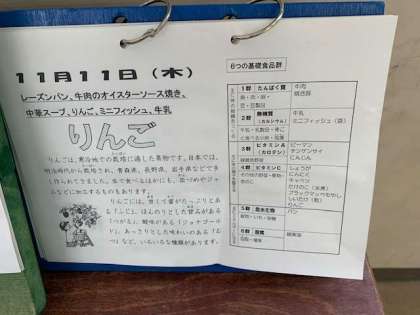 11月11日（木）
レーズンパン、牛肉のオイスターソース焼き、
中華スープ、りんご、ミニフィッシュ、牛乳
りんご
りんごは、寒冷地での栽培に適した果物です。日本では、
明治時代から栽培され、青森県、長野県、岩手県などで多
く作られてきました。生で食べるほかにも、缶づめやジャ
ムなどに加工するものもあります。
りんごには、甘くて蜜がたっぷりとあ
る「ふじ」、ほんのりとした甘みがある
「つがる」、酸味がある「ジョナゴール
ド」、あっさりとした味わいのある「む
つ」など、いろいろな種類があります。
6つの基礎食品群
1群 たんぱく質
魚・肉・卵・
豆・豆製品
牛肉
2群 無機質
（カルシウム）
牛乳・乳製品・骨ご
と食べる小魚・海藻
牛乳
ミニフィッシュ（袋）
3群 ビタミンA
（カロテン）
緑黄色野菜
ピーマン
チンゲンサイ
にんじん
4群 ビタミンC
その他の野菜・果物・
きのこ
しょうが
にんにく
キャベツ
たけのこ（水煮）
ブラックマッペもやし
しいたけ（乾）
りんご
5群 炭水化物
穀物・いも・砂糖
パン
6群 脂質
油脂・種実